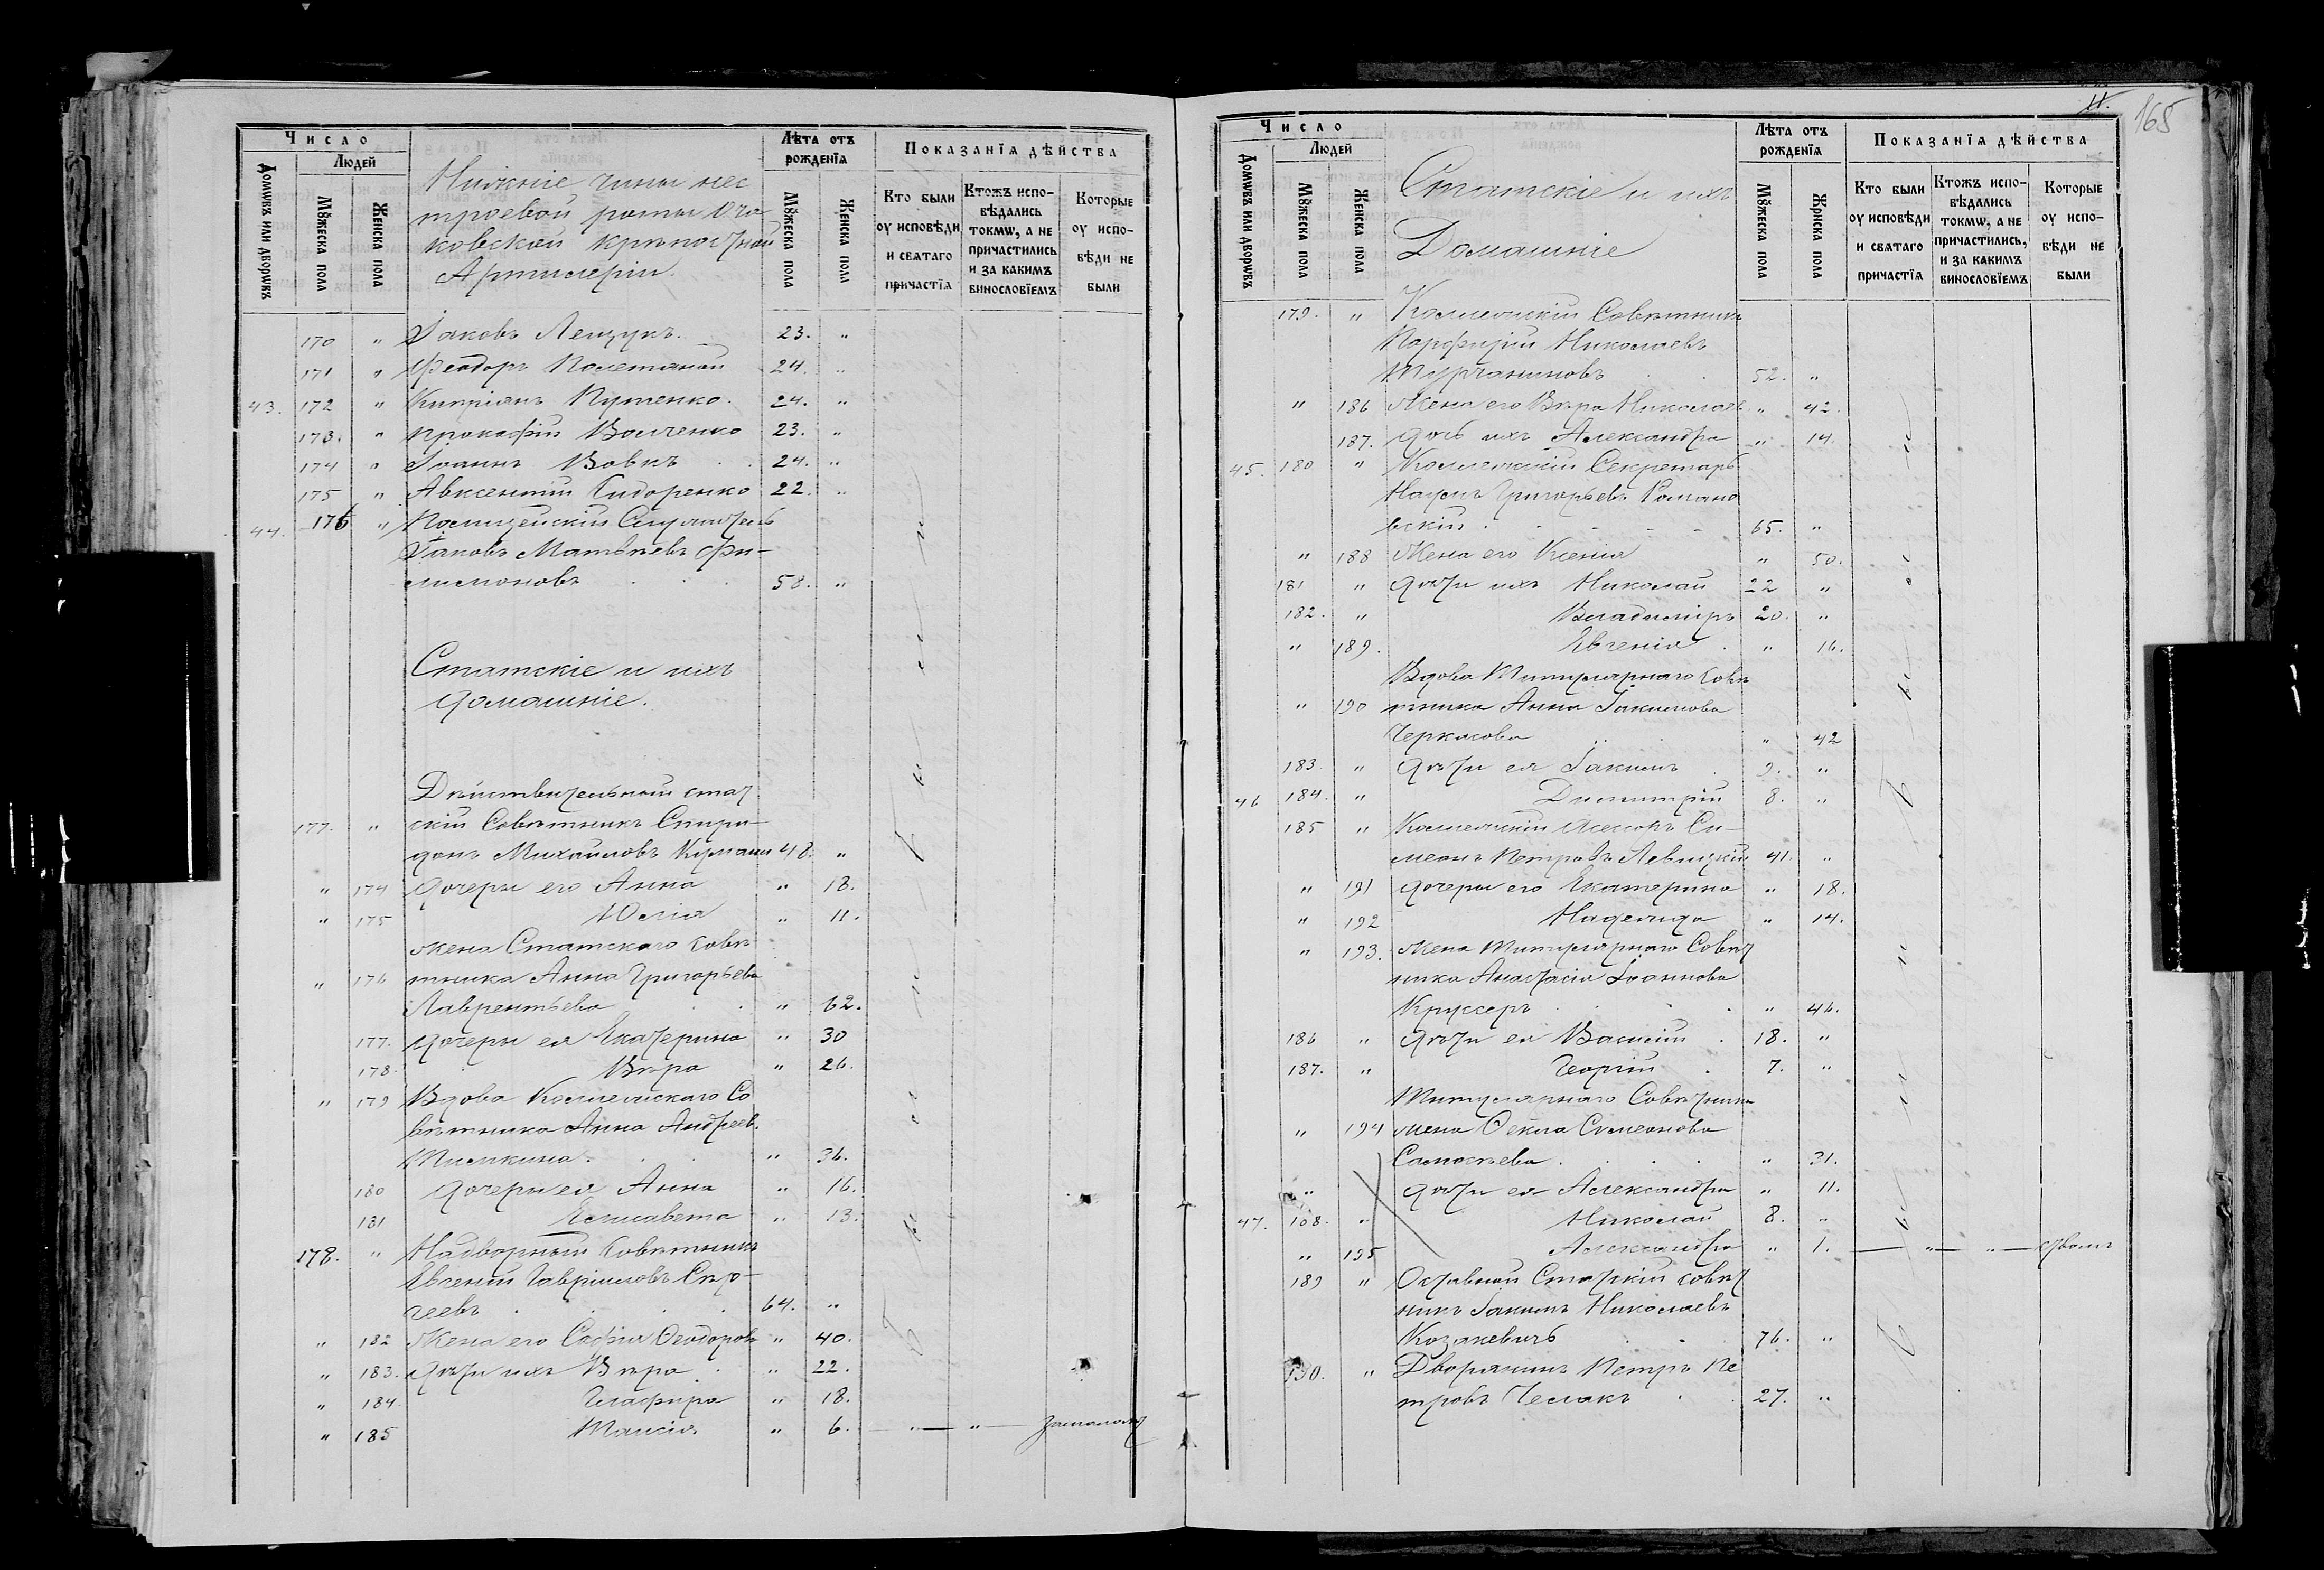 Число
Людей
Домѡвъ или дворѡвъ
Мꙋжеска пола
Женска пола
Нижніе чины нес
троевой роты Оча
ковской крѣпостной
Артилеріи.
Лѣта отъ рожденїѧ
Мꙋжеска пола
Женска пола
Показанїѧ дѣйства
Кто были оу исповѣди и свѧтаго причастїѧ
Ктожъ исповѣдались токмѡ, а не причастились и за какимъ винословїемъ
Которые оу исповѣди не были
170 " Іаковъ Лещукъ. 23. "
171 " Феодоръ 24. "
43. 172 " Кипріянъ Путенко. 24. "
173. " Прокофій Волченко 23. "
174 " Іоаннъ Вовкъ 24. "
175 " Авксентій Сидоренко 22. "
44. 176 " Полицейскій Служитель
Іаковъ Матвѣевъ Фи-
лимоновъ 58. "
Статскіе и ихъ
домашніе.
Дѣйствительный стат
177. " скій Совѣтникъ Спири-
донъ Михайловъ 48. "
" 174 дочери его Анна " 18.
" 175 Юлія " 11.
жена Статскаго совѣ
" 176 тника Анна Григорьева
Лаврентьева " 62.
177. дочери ея Екатерина " 30
178. Вѣра " 26.
" 179 Вдова Коллежскаго Со
вѣтника Анна Андреев.
Тимкина. " 36.
180 дочери ея Анна " 16.
181 Елисавета " 13.
178. " Надворный Совѣтникъ
Евгеній Гавріиловъ Сер-
геевъ 64. "
" 182 Жена его Софія Ѳеодоров " 40.
" 183. дѣти ихъ Вѣра " 22.
" 184. Глафира " 18.
" 185 Таисія " 6. " " замалолѣт
165
Число
Людей
Домѡвъ или дворѡвъ
Мꙋжеска пола
Женска пола
Статскіе и ихъ
Домашніе
Лѣта отъ рожденїѧ
Мꙋжеска пола
Женска пола
Показанїѧ дѣйства
Кто были оу исповѣди и свѧтаго причастїѧ
Ктожъ исповѣдались токмѡ, а не причастились, и за какимъ винословїемъ
Которые оу исповѣди не были
179. " Коллежскій Совѣтникъ
Порфирій Николаевъ
Турчаниновъ 52. "
" 186 Жена его Вѣра Николаев " 42.
187. дочь ихъ Александра " 14.
45. 180 " Коллежскій Секретарь
Наумъ Григорьевъ Романо
вскій 65. "
" 188 Жена его Ксенія " 50.
181 " дѣти ихъ Николай 22 "
182. " Владиміръ 20. "
" 189. Евгенія " 16.
Вдова Титулярнаго Совѣ
" 190 тника Анна Іакимова
Черкасова " 42
183. " дѣти ея Іакимъ 9. "
46 184. " Димитрій 8. "
185 " Коллежскій Асесоръ Си-
меонъ Петровъ Левицкій 41. "
" 191 дочери его Екатерина " 18.
" 192 Надежда " 14.
" 193. Жена Титулярнаго Совѣт
ника Анастасія Іоаннова
Круссеръ " 46.
186 " дѣти ея Василій 18. "
187. " Георгій 7. "
Титулярнаго Совѣтника
" 194 жена Ѳекла Симеонова
" 31.
" дѣти ея Александра " 11.
47. 188. " Николай 8. "
" 195 Александра " 1. " "
189 " Отставной Статскій совѣт
никъ Іакимъ Николаевъ
Козакевичъ 76. "
190. " Дворянинъ Петръ Пе
тровъ Челакъ 27. "